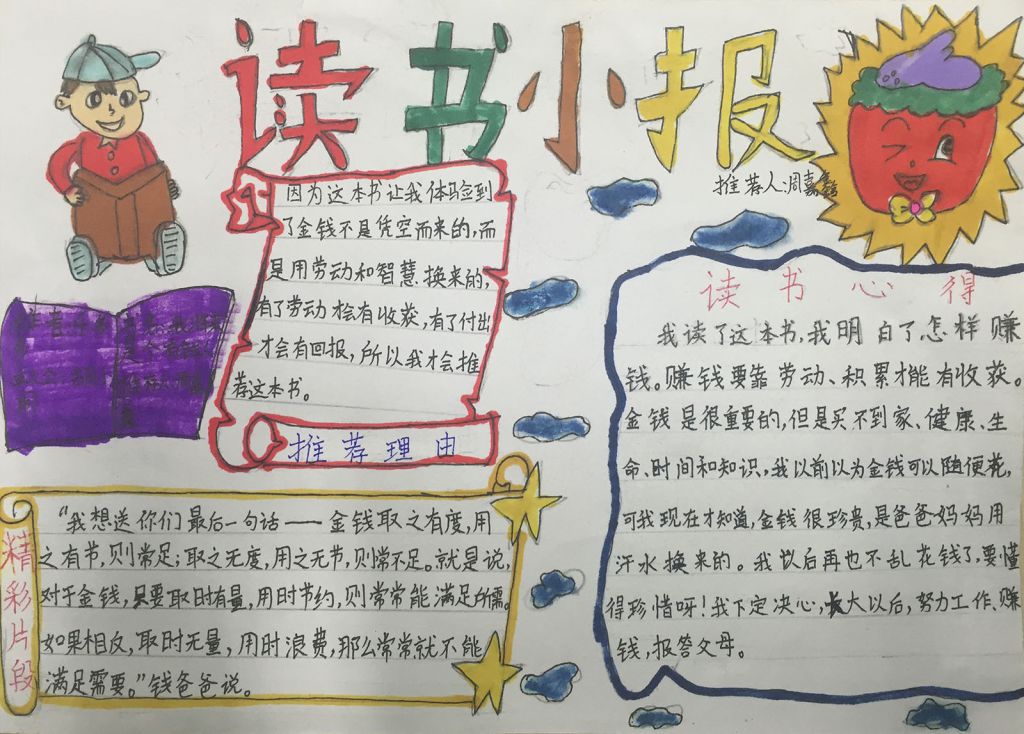 读书小报
推荐人:周嘉鑫
因为这本书让我体验到
了金钱不是凭空而来的,而
是用劳动和智慧换来的,
有了劳动才会有收获,有了付出
才会有回报,所以我才会推
荐这本书。
推荐理由
读书心得
我读了这本书,我明白了怎样赚
钱。赚钱要靠劳动、积累才能有收获。
金钱是很重要的,但是买不到家、健康、生
命、时间和知识,我以前以为金钱可以随便花,
可我现在才知道,金钱很珍贵,是爸爸妈妈用
汗水换来的。我以后再也不乱花钱了,要懂
得珍惜呀!我下定决心,长大以后,努力工作、赚
钱,报答父母。
精彩片段
“我想送你们最后一句话——金钱取之有度,用
之有节,则常足;取之无度,用之无节,则常不足。就是说,
对于金钱,只要取时有量,用时节约,则常常能满足所需。
如果相反,取时无量,用时浪费,那么常常就不能
满足需要。”钱爸爸说。